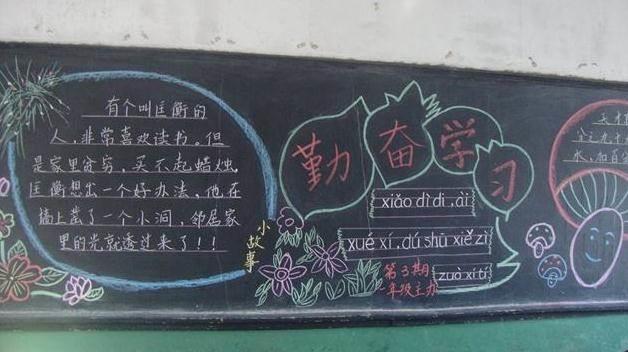 有个叫匡衡的
人，非常喜欢读书。但
是家里贫穷，买不起蜡烛，
匡衡想出一个好办法，他在
墙上凿了一个小洞，邻居家
里的光就透过来了！！
小故事
勤奋学习
xiǎo dì di ,ài
xué xí, dú shū xiě zì
zuò xí tí
第3期
年级主办
天才
水，加百分